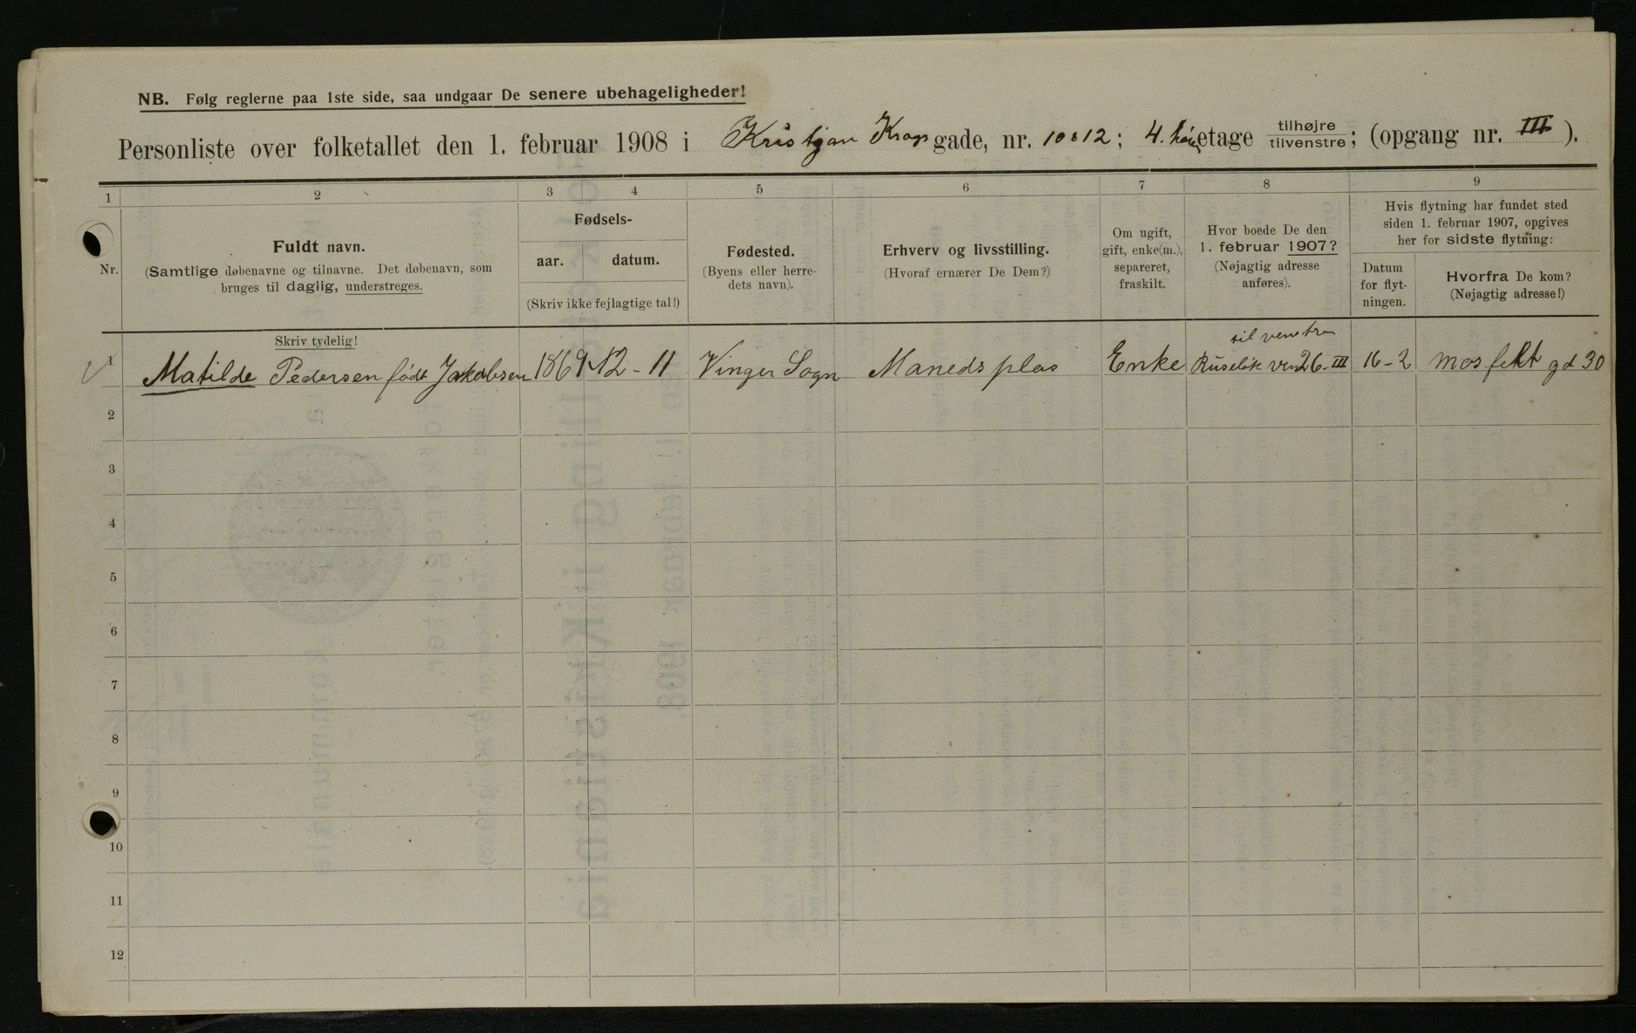 NB. Følg reglerne paa 1ste side, saa undgaar De senere ubehageligheder!
Personliste over folketallet den 1. februar 1908 i Kristjan Krogs gade, nr. 10 & 12; 4. etage tilhøjre tilvenstre; (opgang nr. III).
1 2 3 4 5 6 7 8 9
Nr.
Fuldt navn.
(Samtlige døbenavne og tilnavne. Det døbenavn, som
bruges til daglig, understreges.
Fødsels-
aar. datum.
(Skriv ikke fejlagtige tal!)
Fødested.
(Byens eller herre-
dets navn).
Erhverv og livsstilling.
(Hvoraf ernærer De Dem?)
Om ugift,
gift, enke(m.),
separeret,
fraskilt.
Hvor boede De den
1. februar 1907?
(Nøjagtig adresse
anføres).
Hvis flytning har fundet sted
siden 1. februar 1907, opgives
her for sidste flytning:
Datum
for flyt-
ningen.
Hvorfra De kom?
(Nøjagtig adresse!)
Skriv tydelig!
til venstre
1 Matilde Pedersen født Jakobsen 1869 12 - 11 Vinger Sogn Maneds plas Enke Ruselök 26 III 16-2 Mosfelt gd 30
2
3
4
5
6
7
8
9
10
11
12